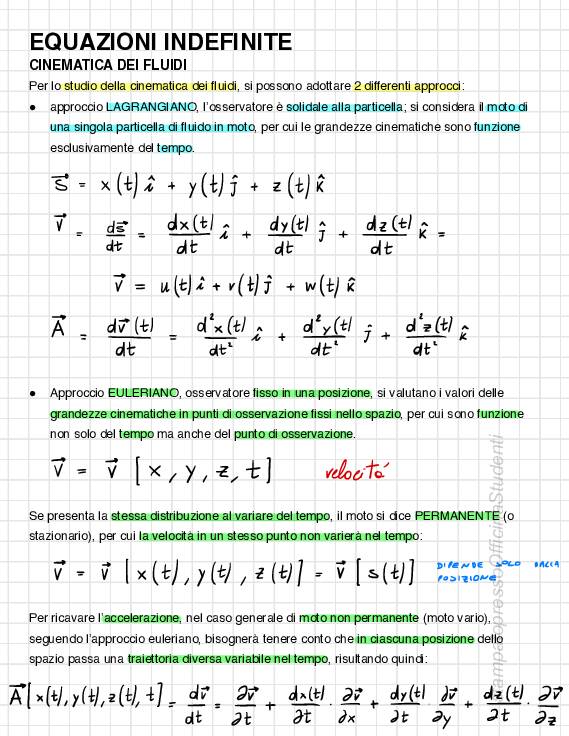 EQUAZIONI INDEFINITE
CINEMATICA DEI FLUIDI
Per lo studio della cinematica dei fluidi, si possono adottare 2 differenti approcci:
● approccio LAGRANGIANO, l'osservatore è solidale alla particella; si considera il moto di
una singola particella di fluido in moto, per cui le grandezze cinematiche sono funzione
esclusivamente del tempo.
s⃗ = x(t) î + y(t) ĵ + z(t) k̂
v⃗ = ds⃗/dt = dx(t)/dt î + dy(t)/dt ĵ + dz(t)/dt k̂ =
v⃗ = u(t) î + v(t) ĵ + w(t) k̂
A⃗ = dv⃗(t)/dt = d²x(t)/dt² î + d²y(t)/dt² ĵ + d²z(t)/dt² k̂
● Approccio EULERIANO, osservatore fisso in una posizione, si valutano i valori delle
grandezze cinematiche in punti di osservazione fissi nello spazio, per cui sono funzione
non solo del tempo ma anche del punto di osservazione.
v⃗ = v⃗ [x, y, z, t] velocità
Se presenta la stessa distribuzione al variare del tempo, il moto si dice PERMANENTE (o
stazionario), per cui la velocità in un stesso punto non varierà nel tempo:
v⃗ = v⃗ [x(t), y(t), z(t)] = v⃗ [s(t)] DIPENDE SOLO DALLA
POSIZIONE
Per ricavare l'accelerazione, nel caso generale di moto non permanente (moto vario),
seguendo l'approccio euleriano, bisognerà tenere conto che in ciascuna posizione dello
spazio passa una traiettoria diversa variabile nel tempo, risultando quindi:
A⃗[x(t), y(t), z(t), t] = dv⃗/dt = ∂v⃗/∂t + dx(t)/∂t · ∂v⃗/∂x + dy(t)/∂t · ∂v⃗/∂y + dz(t)/∂t · ∂v⃗/∂z